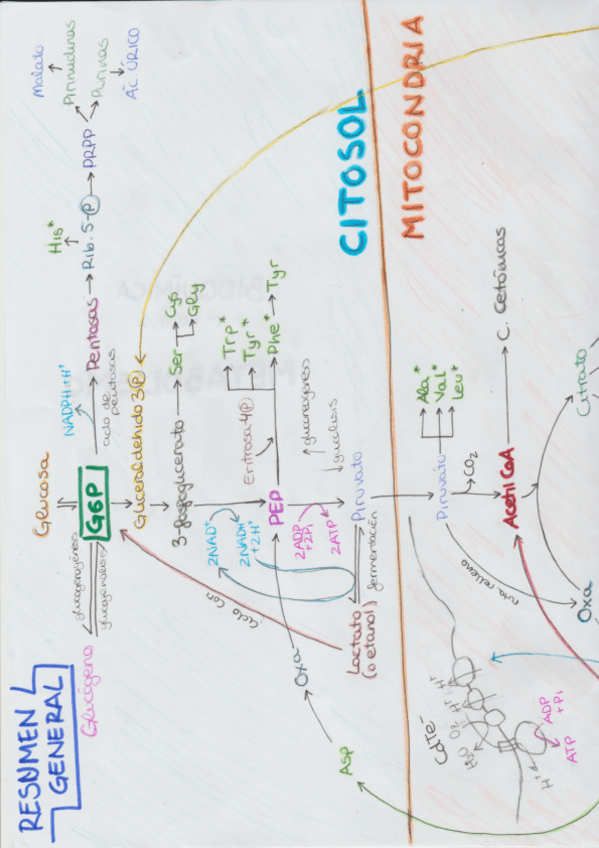 RESUMEN
GENERAL
Glucógeno
glucogenogénesis
glucogenolisis
Glucosa
G6P
NADPH+H⁺
ciclo de
pentosas
Pentosas
Rib. 5-P
His*
PRPP
Pirimidinas
Malato
Purinas
Ác. ÚRICO
Gliceraldehído 3P
3-fosfoglicerato
Ser
Cys
Gly
2NAD⁺
2NADH
+2H⁺
PEP
Eritrosa 4P
Trp*
Tyr*
Phe*
Tyr
2ADP
+2Pi
2ATP
gluconeogénesis
glucolisis
Piruvato
fermentación
Lactato
(o etanol)
Ciclo Cori
Oxa
ASP
CITOSOL
MITOCONDRIA
Piruvato
Ala*
Val*
Leu*
CO₂
ruta relleno
Acetil CoA
C. Cetónicos
Citrato
Oxa
CdTe⁻
H₂O
O₂
H⁺
H⁺
H⁺
ADP
+Pi
ATP